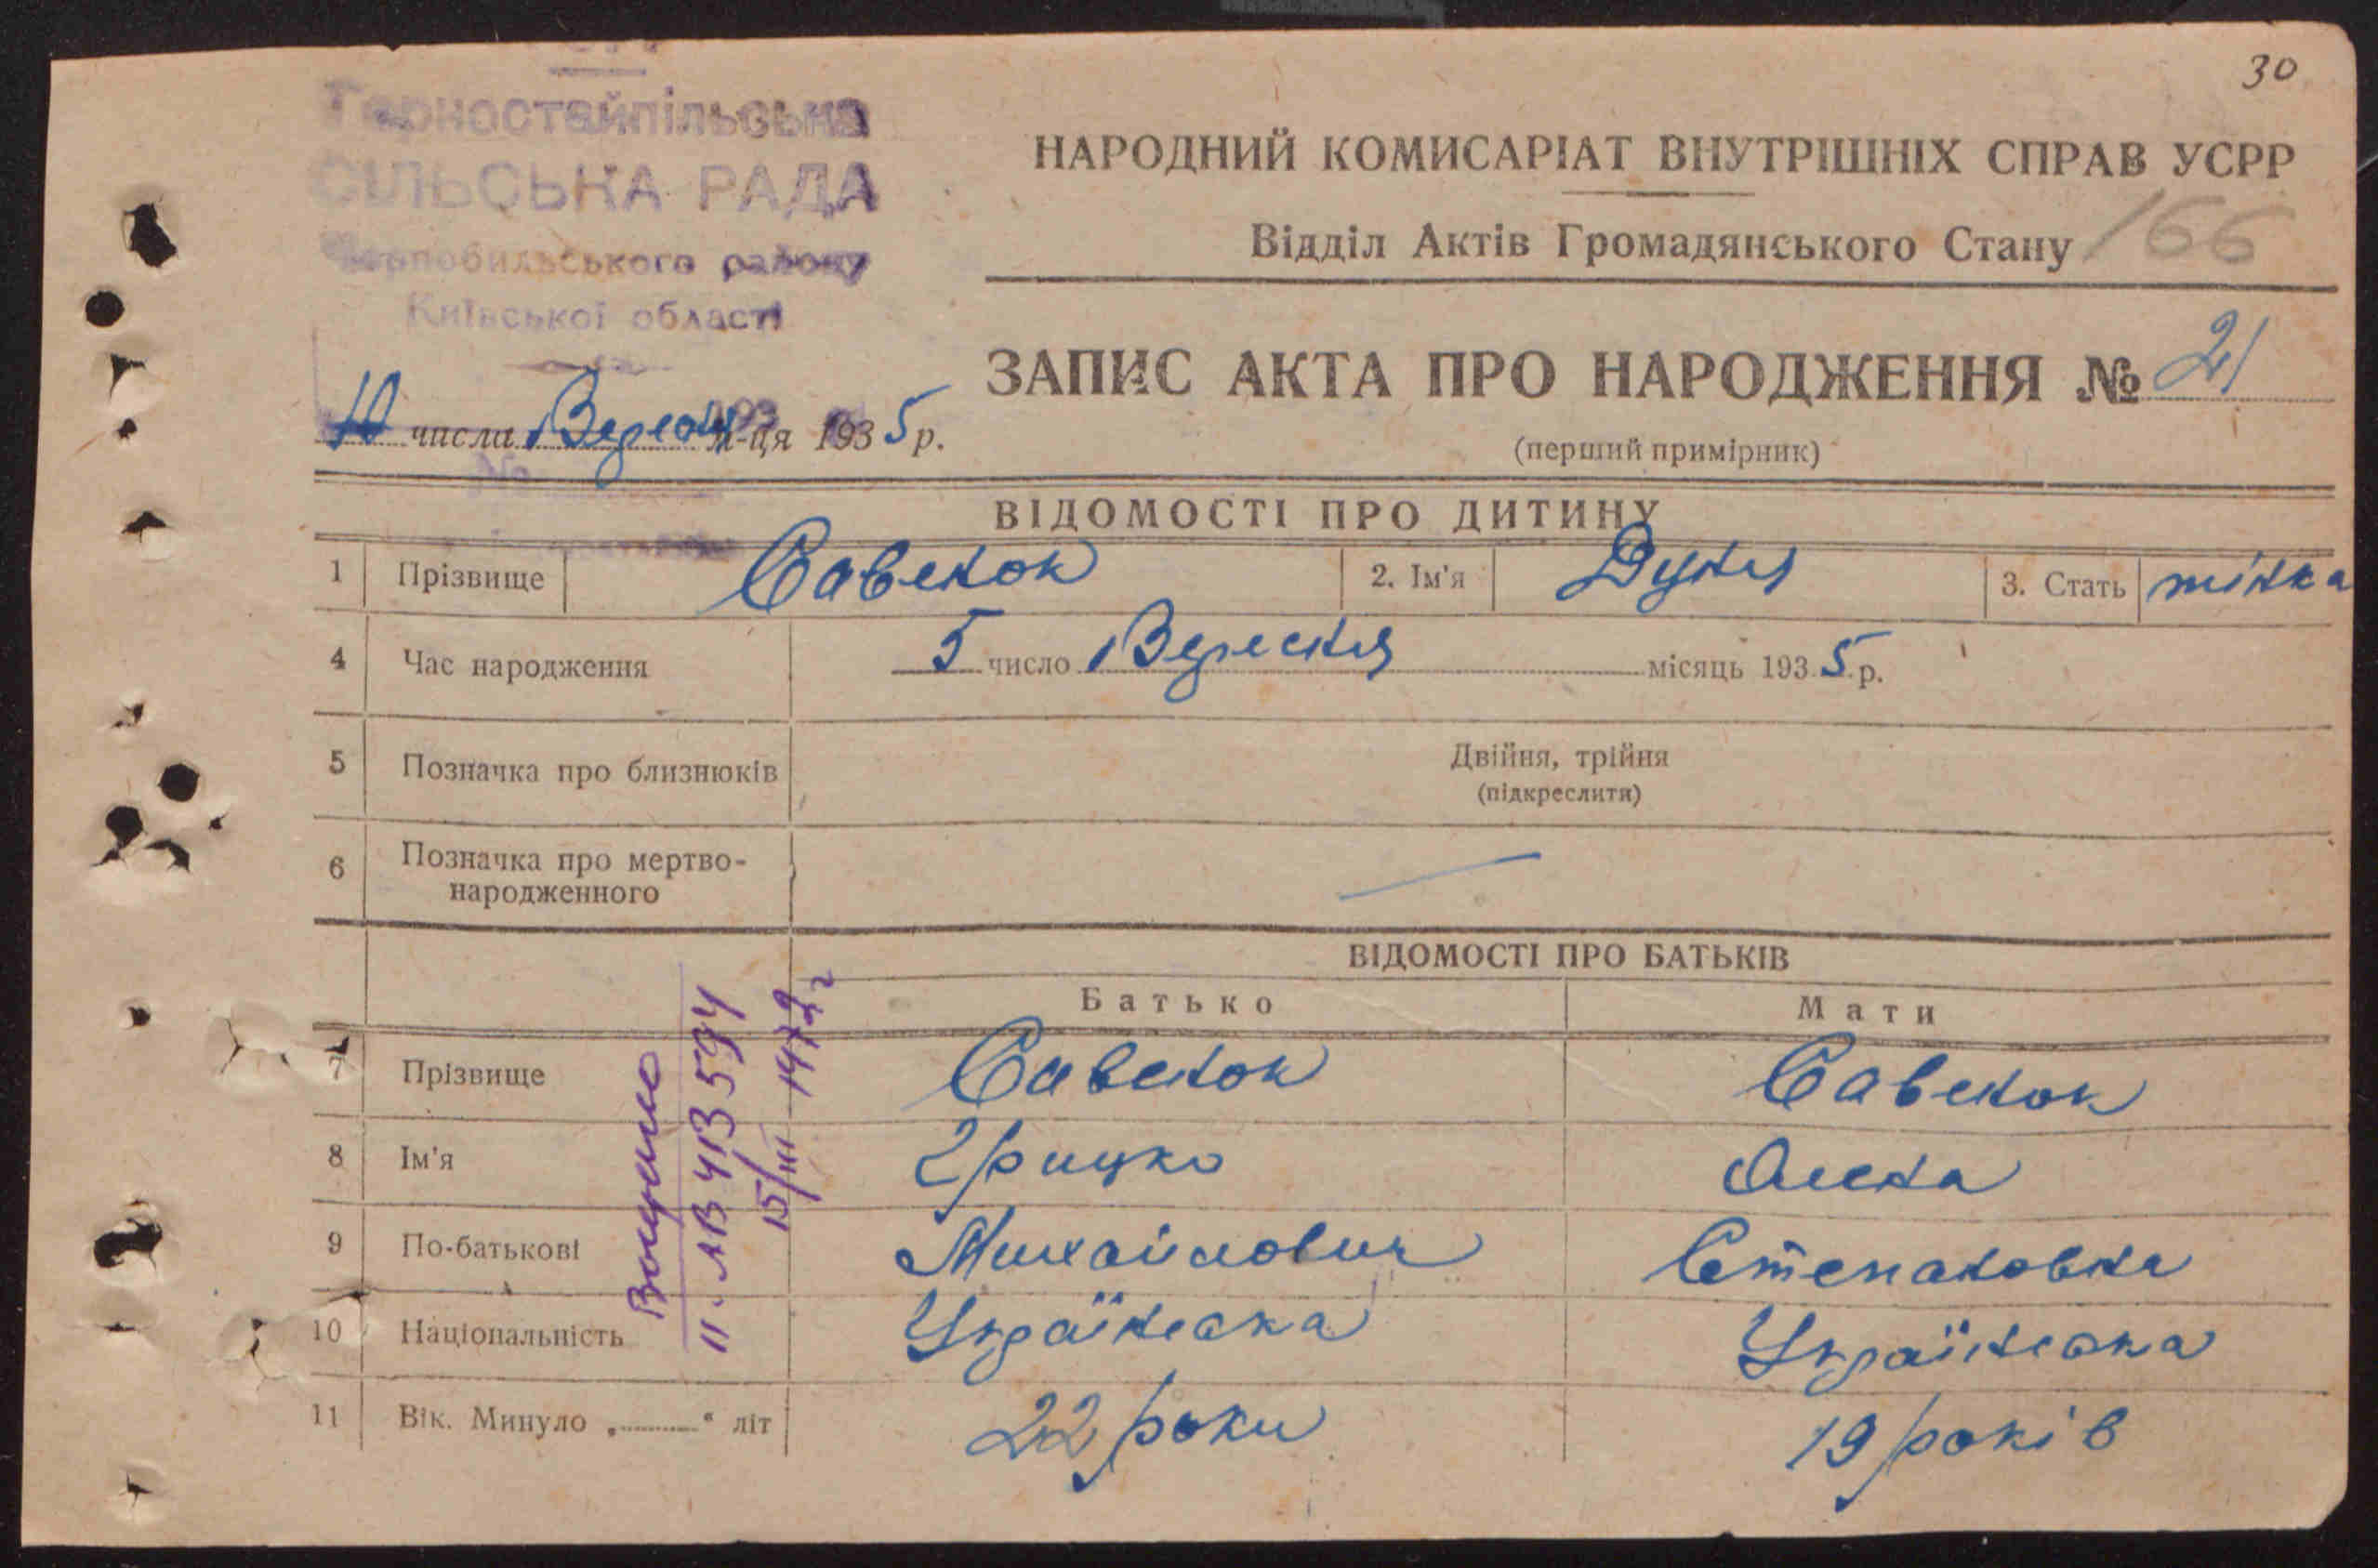 30
Горностайпільська
СІЛЬСЬКА РАДА
Чорнобильського району
Київської області
НАРОДНИЙ КОМИСАРІАТ ВНУТРІШНІХ СПРАВ УСРР
Відділ Актів Громадянського Стану
166
ЗАПИС АКТА ПРО НАРОДЖЕННЯ № 21
(перший примірник)
10 числа Вересня м-ця 1935 р.
№
ВІДОМОСТІ ПРО ДИТИНУ
1 Прізвище Савенок 2. Ім'я Дуня 3. Стать жінка
4 Час народження 5 число Вересня місяць 1935 р.
5 Позначка про близнюків Двійня, трійня
(підкреслити)
6 Позначка про мертво-
народженного
ВІДОМОСТІ ПРО БАТЬКІВ
Батько Мати
7 Прізвище Савенок Савенок
8 Ім'я Грицко Олена
9 По-батькові Михайлович Степановна
10 Національність Українська Українська
11 Вік. Минуло „ “ літ 22 роки 19 років
II-АВ 413594
15/III 1979 г